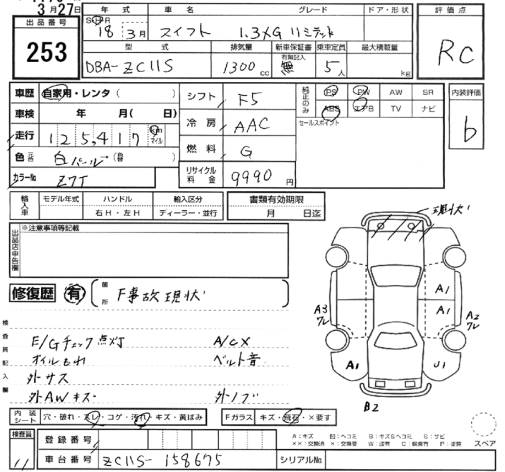 3月27日
出品番号
253
年式 車名 グレード ドア・形状
18年3月 スイフト 1.3XG リミテッド
型式 排気量 新車保証書 乗車定員 最大積載量
DBA-ZC11S 1300cc 有 無 5人 kg
評価点
RC
車歴 自家用・レンタ( )
車検 年 月( 日)
走行 125,417 km マイル
色 白パール
カラーNo Z7T
シフト F5
冷房 AAC
燃料 G
リサイクル料金 9990円
純正のみ PS PW AW SR
ABS エアB TV ナビ
セールスポイント
内装評価
b
輸入車 モデル年式 ハンドル 輸入区分
右H・左H ディーラー・並行
書類有効期限
月 日迄
※注意事項等記載
修復歴 有 箇所 F事故現状
検査員記入欄
E/Gチェック点灯 A/CX
オイルもれ ベルト音
外サス
外AWキズ 外ノブ
現状
A1
A1
A3
A2
A1
U1
B2
内装シート 穴・破れ・スレ・コゲ・汚れ・キズ・黄ばみ
Fガラス キズ・飛石・×要す
A:キズ U:凹ヘコミ B:キズ&ヘコミ S:サビ
××:交換済 ×:交換要 W:波有 C:腐食有 P:塗装
スペア
検査員
登録番号
車台番号 ZC11S-158675
シリアルNo